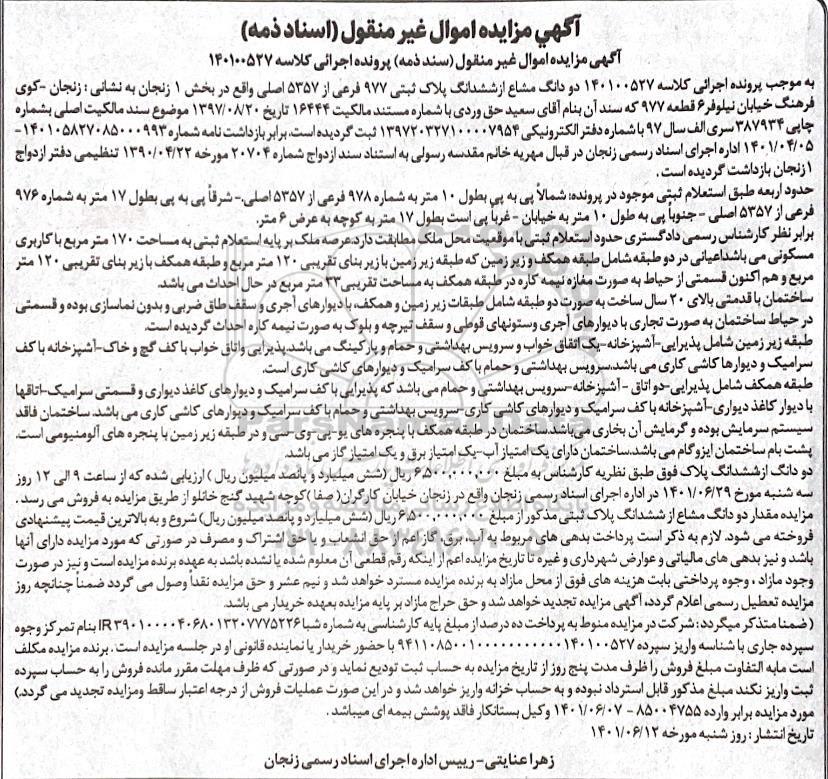 آگهي مزايده اموال غير منقول (اسناد ذمه)
آگهی مزایده اموال غیر منقول (سند ذمه) پرونده اجرائی کلاسه ۱۴۰۱۰۰۵۲۷
به موجب پرونده اجرائی کلاسه ۱۴۰۱۰۰۵۲۷ دو دانگ مشاع ازششدانگ پلاک ثبتی ۹۷۷ فرعی از ۵۳۵۷ اصلی واقع در بخش ۱ زنجان به نشانی : زنجان -کوی
فرهنگ خیابان نیلوفر۶ قطعه ۹۷۷ که سند آن بنام آقای سعید حق وردی با شماره مستند مالکیت ۱۶۴۴۴ تاریخ ۱۳۹۷/۰۸/۲۰ موضوع سند مالکیت اصلی بشماره
چاپی ۳۸۷۹۳۴ سری الف سال ۹۷ با شماره دفتر الکترونیکی ۱۳۹۷۲۰۳۲۷۱۰۰۰۰۷۹۵۴ ثبت گردیده است، برابر بازداشت نامه شماره ۱۴۰۱۰۵۸۲۷۰۸۵۰۰۰۹۹۳-
۱۴۰۱/۰۴/۰۵ اداره اجرای اسناد رسمی زنجان در قبال مهریه خانم مقدسه رسولی به استناد سند ازدواج شماره ۲۰۷۰۴ مورخه ۱۳۹۰/۰۴/۲۲ تنظیمی دفتر ازدواج
۱ زنجان بازداشت گردیده است .
حدود اربعه طبق استعلام ثبتی موجود در پرونده: شمالاً پی به پی بطول ۱۰ متر به شماره ۹۷۸ فرعی از ۵۳۵۷ اصلی.- شرقاً پی به پی بطول ۱۷ متر به شماره ۹۷۶
فرعی از ۵۳۵۷ اصلی - جنوباً پی به طول ۱۰ متر به خیابان - غرباً پی است بطول ۱۷ متر به کوچه به عرض ۶ متر.
برابر نظر کارشناس رسمی دادگستری حدود استعلام ثبتی با موقعیت محل ملک مطابقت دارد.عرصه ملک بر پایه استعلام ثبتی به مساحت ۱۷۰ متر مربع با کاربری
مسکونی می باشداعیانی در دو طبقه شامل طبقه همکف و زیر زمین که طبقه زیر زمین با زیر بنای تقریبی ۱۲۰ متر مربع و طبقه همکف با زیر بنای تقریبی ۱۲۰ متر
مربع و هم اکنون قسمتی از حیاط به صورت مغازه نیمه کاره در طبقه همکف به مساحت تقریبی ۳۳ متر مربع در حال احداث می باشد.
ساختمان با قدمتی بالای ۲۰ سال ساخت به صورت دو طبقه شامل طبقات زیر زمین و همکف، با دیوارهای آجری و سقف طاق ضربی و بدون نماسازی بوده و قسمتی
در حیاط ساختمان به صورت تجاری با دیوارهای آجری وستونهای قوطی و سقف تیرچه و بلوک به صورت نیمه کاره احداث گردیده است.
طبقه زیر زمین شامل پذیرایی-آشپزخانه-یک اتفاق خواب و سرویس بهداشتی و حمام و پارکینگ می باشد.پذیرایی واتاق خواب با کف گچ و خاک-آشپزخانه با کف
سرامیک و دیوارها کاشی کاری می باشد.سرویس بهداشتی و حمام با کف سرامیک و دیوارهای کاشی کاری است.
طبقه همکف شامل پذیرایی-دو اتاق - آشپزخانه-سرویس بهداشتی و حمام می باشد که پذیرایی با کف سرامیک و دیوارهای کاغذ دیواری و قسمتی سرامیک-اتاقها
با دیوار کاغذ دیواری-آشپزخانه با کف سرامیک و دیوارهای کاشی کاری-سرویس بهداشتی و حمام با کف سرامیک و دیوارهای کاشی کاری می باشد. ساختمان فاقد
سیستم سرمایش بوده و گرمایش آن بخاری می‌باشد.ساختمان در طبقه همکف با پنجره های یو-پی-وی-سی و در طبقه زیر زمین با پنجره های آلومنیومی است.
پشت بام ساختمان ایزوگام می باشد.ساختمان دارای یک امتیاز آب-یک امتیاز برق و یک امتیاز گاز می باشد.
دو دانگ ازششدانگ پلاک فوق طبق نظریه کارشناس به مبلغ ۶,۵۰۰,۰۰۰,۰۰۰ ریال (شش میلیارد و پانصد میلیون ریال ) ارزیابی شده که از ساعت ۹ الی ۱۲ روز
سه شنبه مورخ ۱۴۰۱/۰۶/۲۹ در اداره اجرای اسناد رسمی زنجان واقع در زنجان خیابان کارگران( صفا) کوچه شهید گنج خانلو از طریق مزایده به فروش می رسد .
مزایده مقدار دو دانگ مشاع از ششدانگ پلاک ثبتی مذکور از مبلغ ۶,۵۰۰,۰۰۰,۰۰۰ ریال (شش میلیارد و پانصد میلیون ریال) شروع و به بالاترین قیمت پیشنهادی
فروخته می شود. لازم به ذکر است پرداخت بدهی های مربوط به آب، برق، گاز اعم از حق انشعاب و یا حق اشتراک و مصرف در صورتی که مورد مزایده دارای آنها
باشد و نیز بدهی های مالیاتی و عوارض شهرداری و غیره تا تاریخ مزایده اعم از اینکه رقم قطعی آن معلوم شده یا نشده باشد به عهده برنده مزایده است و نیز در صورت
وجود مازاد ، وجوه پرداختی بابت هزینه های فوق از محل مازاد به برنده مزایده مسترد خواهد شد و نیم عشر و حق مزایده نقداً وصول می گردد ضمناً چنانچه روز
مزایده تعطیل رسمی اعلام گردد، آگهی مزایده تجدید خواهد شد و حق حراج مازاد بر پایه مزایده بعهده خریدار می باشد.
( ضمنا متذکر میگردد: شرکت در مزایده منوط به پرداخت ده درصد از مبلغ پایه کارشناسی به شماره شبا IR۳۹۰۱۰۰۰۰۴۰۶۸۰۱۳۲۰۷۷۷۵۲۲۶ بنام تمرکز وجوه
سپرده جاری با شناسه واریز سپرده ۹۴۱۱۰۸۵۰۰۱۰۰۰۰۰۰۰۰۰۰۰۰۰۱۴۰۱۰۰۵۲۷ با حضور خریدار یا نماینده قانونی او در جلسه مزایده است . برنده مزایده مکلف
است مابه التفاوت مبلغ فروش را ظرف مدت پنج روز از تاریخ مزایده به حساب ثبت تودیع نماید و در صورتی که ظرف مهلت مقرر مانده فروش را به حساب سپرده
ثبت واریز نکند مبلغ مذکور قابل استرداد نبوده و به حساب خزانه واریز خواهد شد و در این صورت عملیات فروش از درجه اعتبار ساقط ومزایده تجدید می گردد.)
مورد مزایده برابر وارده ۸۵۰۰۴۷۵۵ - ۱۴۰۱/۰۶/۰۷ وکیل بستانکار فاقد پوشش بیمه ای میباشد .
تاریخ انتشار : روز شنبه مورخه ۱۴۰۱/۰۶/۱۲
زهرا عنایتی - رییس اداره اجرای اسناد رسمی زنجان